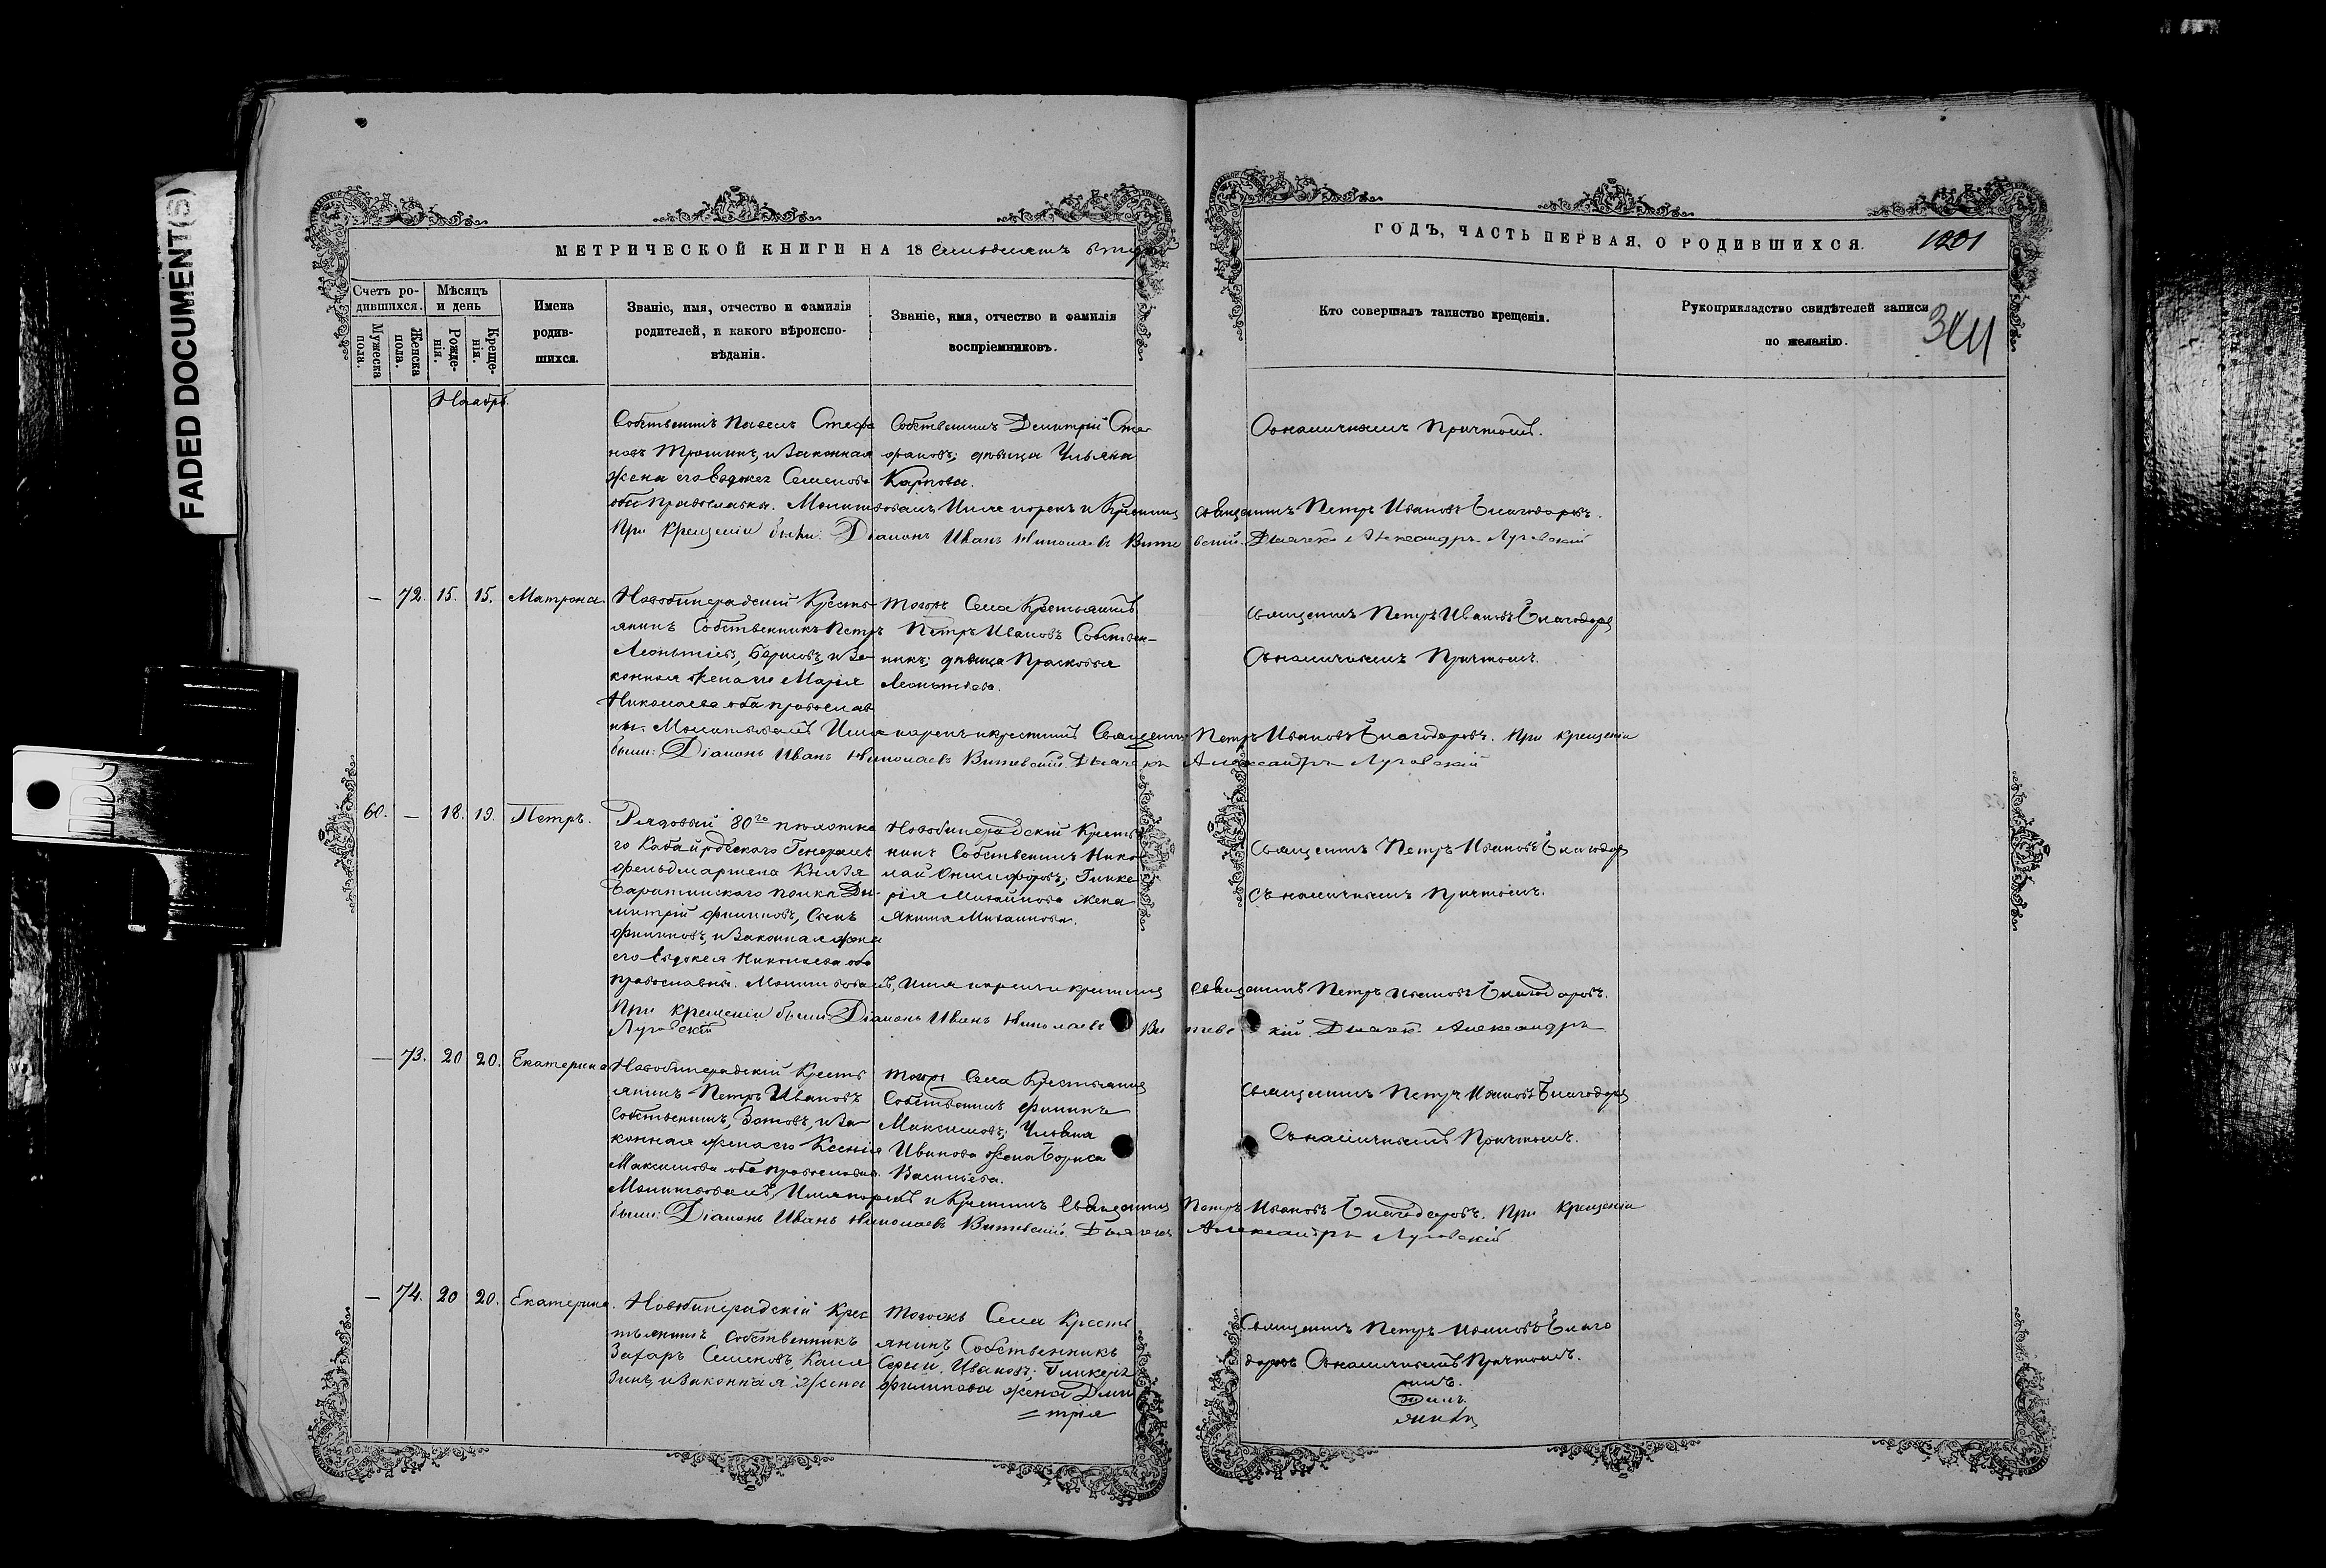 FADED DOCUMENT(S)
МЕТРИЧЕСКОЙ КНИГИ НА 18 Семьдесятъ второй
ГОДЪ, ЧАСТЬ ПЕРВАЯ, О РОДИВШИХСЯ.
1201
Счетъ ро-
дившихся.
Мужеска
пола.
Женска
пола.
Мѣсяцъ
и день
Рожде-
нія.
Креще-
нія.
Имена
родив-
шихся.
Званіе, имя, отчество и фамилія
родителей, и какого вѣроиспо-
вѣданія.
Званіе, имя, отчество и фамилія
воспріемниковъ.
Кто совершалъ таинство крещенія.
Рукоприкладство свидѣтелей записи
по желанію.
Ноябрь.
Собственникъ Павелъ Стефа
новъ Трошинъ, и Законная
жена его Евдокея Семенова
оба Православны. Молитвовалъ Имя нарекъ и Крестилъ Священникъ Петръ Ивановъ Благодаровъ.
При Крещеніи были: Діаконъ Иванъ Николаевъ Витевский. Дьячекъ Александръ Луговскій
Собственникъ Димитрій Сте
фановъ; дѣвица Ульяна
Карпова.
Съ наличнымъ Причтомъ.
— 72. 15. 15. Матрона
Новобинарадскій Кресть
янинъ Собственникъ Петръ
Леонтіевъ, Борисовъ, и За
конная жена его Марія
Николаева оба православ
ны. Молитвовалъ Имя нарекъ и крестилъ Священникъ Петръ Ивановъ Благодаровъ. При крещеніи
были: Діаконъ Иванъ Николаевъ Витевский. Дьячекъ Александръ Луговскій
Тогожъ Села Крестьянинъ
Петръ Ивановъ Собствен-
никъ; дѣвица Прасковья
Леонтіева.
Священникъ Петръ Ивановъ Благодаровъ
Съ наличнымъ Причтомъ.
60. — 18. 19. Петръ.
Рядовый 80го пѣхотна
го Кабардинскаго Генерала
фельдмаршела Князя
Барятинскаго полка Ди
митрій Филиповъ, Сынъ
Филиповъ, и Законная жена
его Евдокея Николаева оба
православны. Молитвовалъ, Имя нарекъ и крестилъ Священникъ Петръ Ивановъ Благодаровъ.
При крещеніи были Діаконъ Иванъ Николаевъ Витевскій. Дьячек. Александръ
Луговскій
Новобинарадскій Кресть
нинъ Собственникъ Нико
лай Никифоровъ; Глике
рія Михайлова жена
Якима Михайлова.
Священникъ Петръ Ивановъ Благодаров
Съ наличнымъ Причтомъ.
— 73. 20 20. Екатерина
Новобинарадскій Кресть
янинъ Петръ Ивановъ
Собственникъ, Зотовъ, и За
конная жена его Ксенія
Максимова оба православны.
Молитвовалъ, Имя нарекъ и Крестилъ Священникъ Петръ Ивановъ Благодаровъ. При Крещеніи
были: Діаконъ Иванъ Николаевъ Витевский. Дьячекъ Александръ Луговскій
Тогожъ Села Крестьянинъ
Собственникъ Филипъ
Максимовъ; Ульяна
Иванова жена Бориса
Васильева.
Священникъ Петръ Ивановъ Благодаров
Съ наличнымъ Причтомъ.
— 74. 20 20. Екатерина.
Новобинарадскій Крес
тьянинъ Собственникъ
Захаръ Семеновъ, Каля
Зинъ, и Законная Жена
Тогожъ Села Кресть
янинъ Собственникъ
Сергей Ивановъ; Гликерія
Филипова жена Дми
= трія
Священникъ Петръ Ивановъ Благо
даровъ Съ наличнымъ Причтомъ.